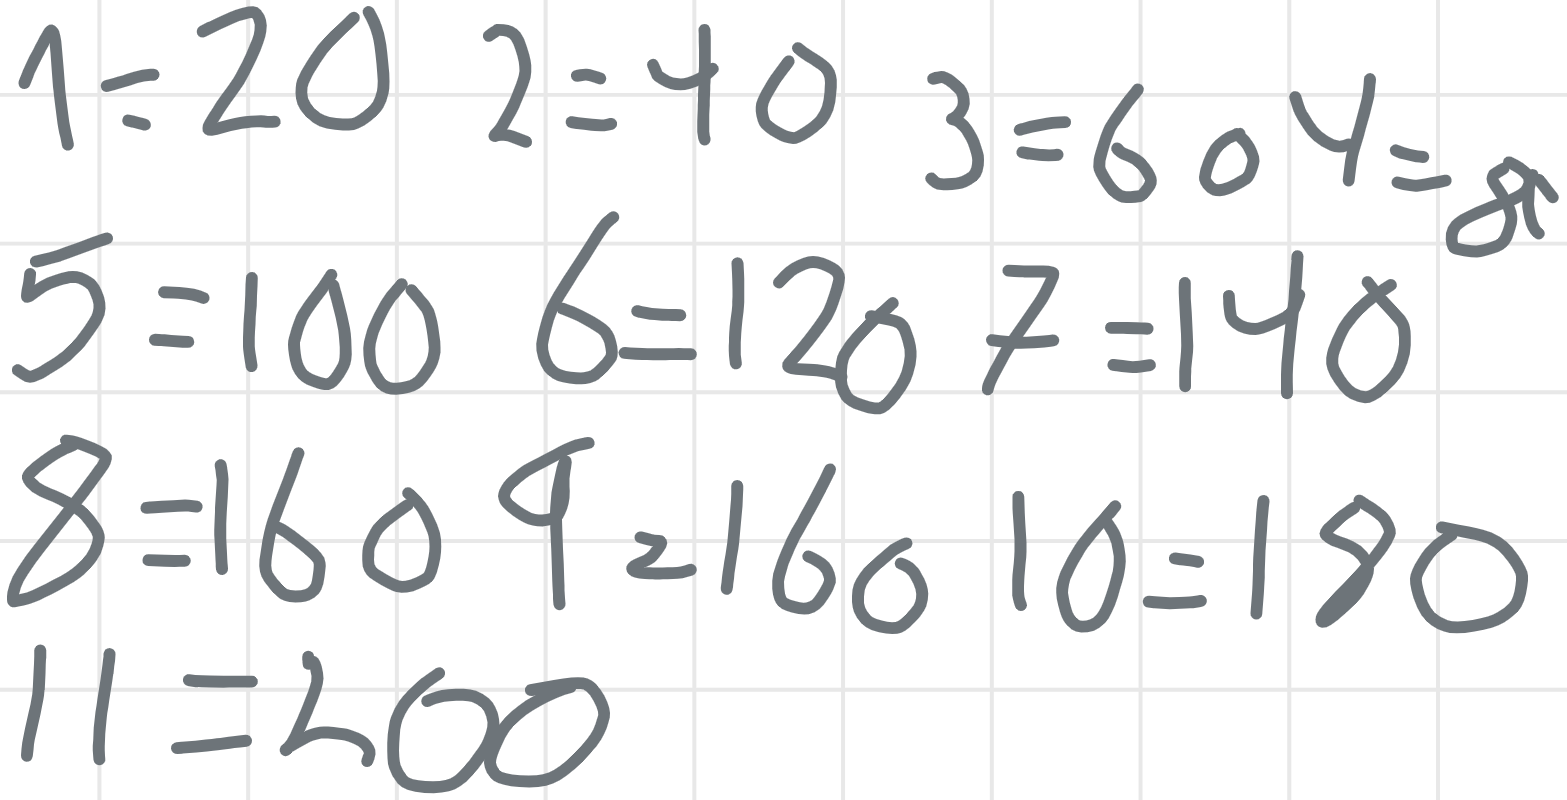 1=20 2=40 3=60 4=
5=100 6=120 7=140
8=160 9=160 10=180
11=200